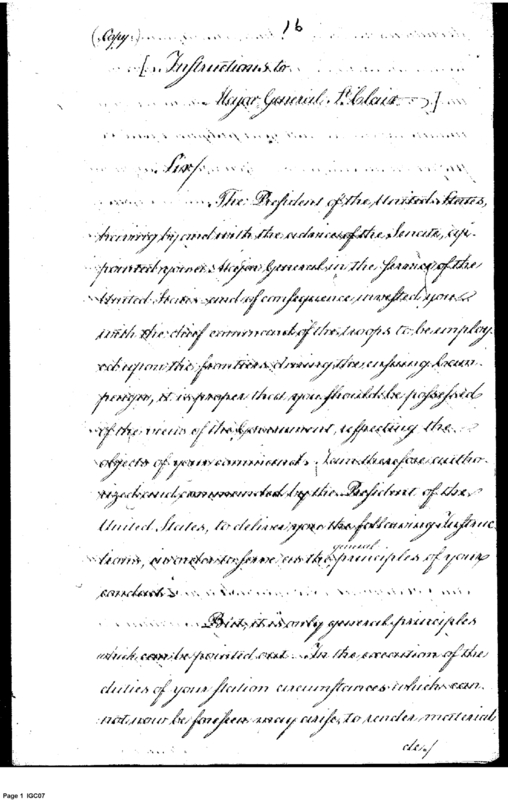 16
(Copy.)
[Instructions to
Major General St. Clair.]
Sir/
The President of the United States,
having by and with the advice of the Senate, ap-
pointed you a Major General in the Service of the
United States and of consequence invested you
with the chief command of the troops to be employ
ed upon the frontiers during the ensuing Cam-
paign, it is proper that you should be possessed
of the views of the Government, respecting the
objects of your command. I am therefore autho
rized and commanded by the President of the
United States, to deliver you the following Instruc
tions, in order to serve as the general principles of your
conduct.
But, it is only general principles
which can be pointed out. In the execution of the
duties of your station circumstances which can-
not now be forseen may arise, to render material
de/
Page 1 IGC07